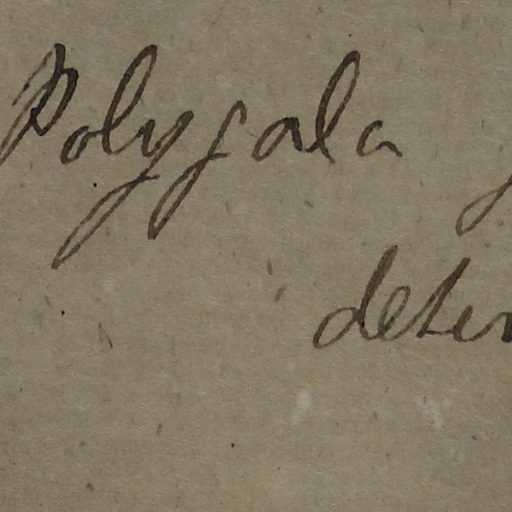 Polygala
deter